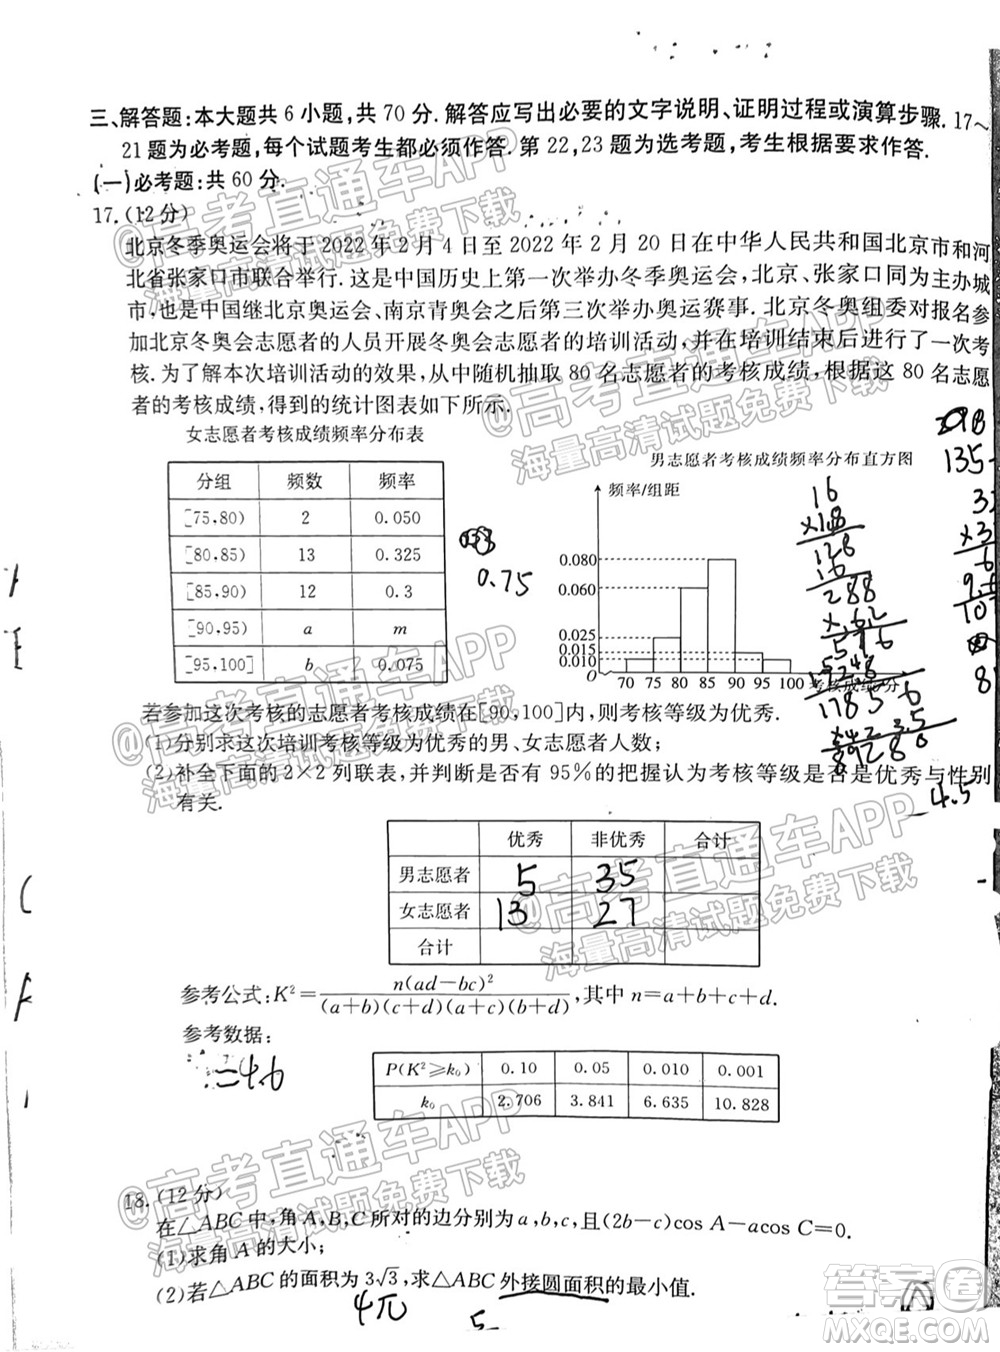 三、解答题:本大题共 6 小题,共 70 分.解答应写出必要的文字说明、证明过程或演算步骤.17～
21 题为必考题,每个试题考生都必须作答.第 22,23 题为选考题,考生根据要求作答.
(一)必考题:共 60 分.
17.(12分)
北京冬季奥运会将于 2022 年 2 月 4 日至 2022 年 2 月 20 日在中华人民共和国北京市和河
北省张家口市联合举行.这是中国历史上第一次举办冬季奥运会,北京、张家口同为主办城
市,也是中国继北京奥运会、南京青奥会之后第三次举办奥运赛事.北京冬奥组委对报名参
加北京冬奥会志愿者的人员开展冬奥会志愿者的培训活动,并在培训结束后进行了一次考
核.为了解本次培训活动的效果,从中随机抽取 80 名志愿者的考核成绩,根据这 80 名志愿
者的考核成绩,得到的统计图表如下所示.
女志愿者考核成绩频率分布表
分组 频数 频率
[75,80) 2 0.050
[80,85) 13 0.325
[85,90) 12 0.3
[90,95) a m
[95,100] b 0.075
0.75
男志愿者考核成绩频率分布直方图
频率/组距
0.080
0.060
0.025
0.015
0.010
70 75 80 85 90 95 100 考核成绩/分
16
×18
128
16
288
135
若参加这次考核的志愿者考核成绩在[90,100]内,则考核等级为优秀.
(1)分别求这次培训考核等级为优秀的男、女志愿者人数;
(2)补全下面的 2×2 列联表,并判断是否有 95%的把握认为考核等级是否是优秀与性别
有关.
4.5
优秀 非优秀 合计
男志愿者 5 35
女志愿者 13 27
合计
参考公式:K²=n(ad−bc)²/(a+b)(c+d)(a+c)(b+d),其中 n=a+b+c+d.
参考数据:
=4.6
P(K²≥k₀) 0.10 0.05 0.010 0.001
k₀ 2.706 3.841 6.635 10.828
18.(12分)
在△ABC中,角A,B,C所对的边分别为a,b,c,且(2b−c)cos A−acos C=0.
(1)求角 A 的大小;
(2)若△ABC 的面积为 3√3,求△ABC 外接圆面积的最小值.
4π
5
@高考直通车APP
海量高清试题免费下载
@高考直通车APP
海量高清试题免费下载
@高考直通车APP
海量高清试题免费下载
@高考直通车APP
海量高清试题免费下载
@高考直通车APP
海量高清试题免费下载
答案圈
MXQE.COM